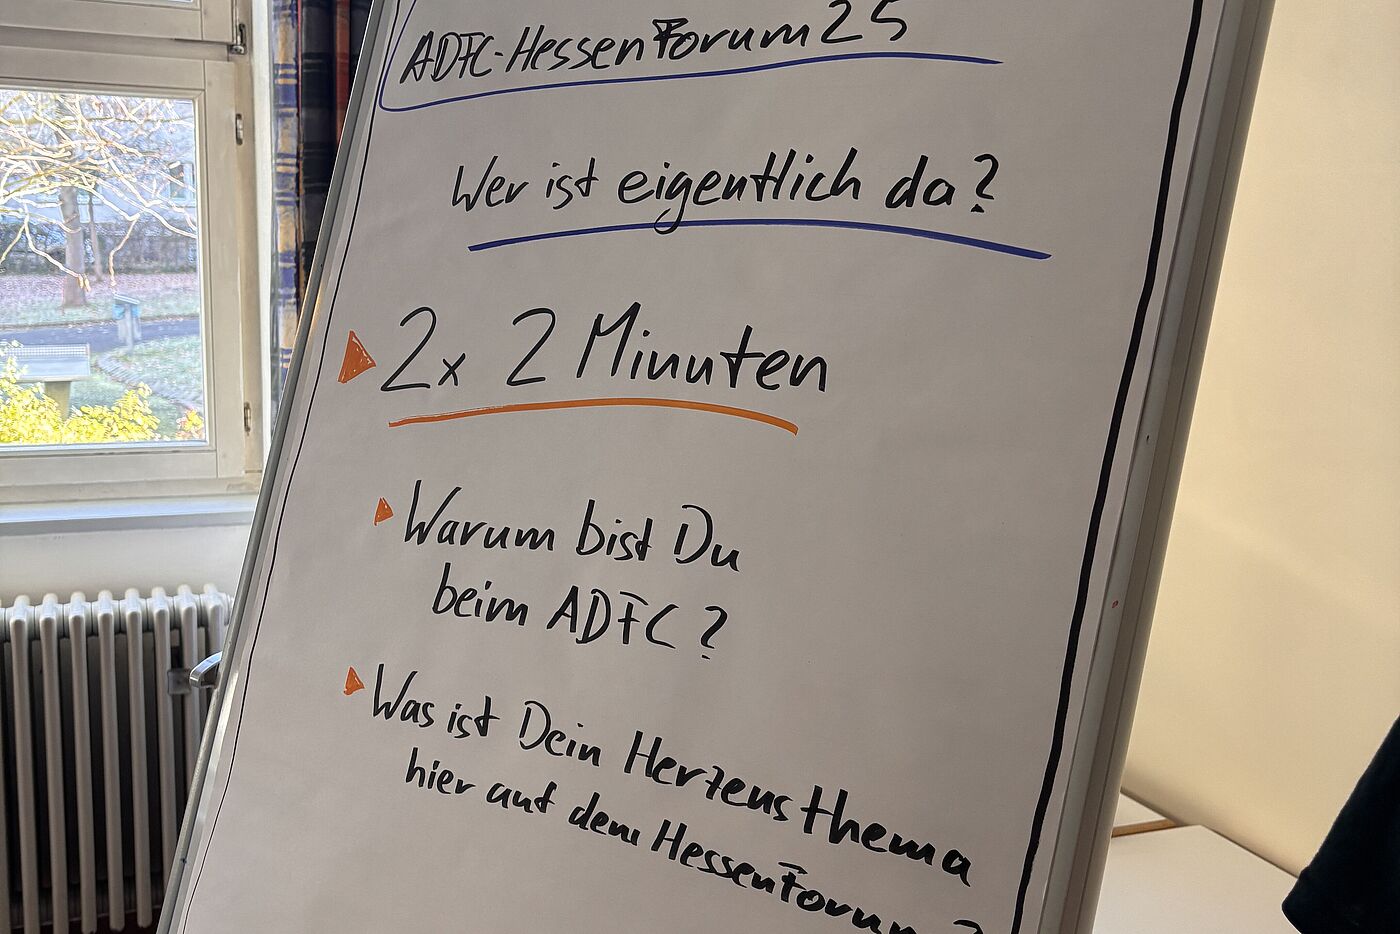 ADFC-HessenForum25
Wer ist eigentlich da?
2x 2 Minuten
Warum bist Du
beim ADFC?
Was ist Dein Herzensthema
hier auf dem HessenForum?